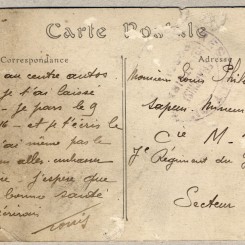 Carte Postale
Correspondance
Adresse
au centre autos
je t'ai laissé
- je pars le 9
16 - et je t'écris le
ai même pas le
aller embrasser
j'espère que
bonne santé
Louis
Monsieur Louis
Sapeur Mineur
Cie M -
7e Régiment du
Secteur